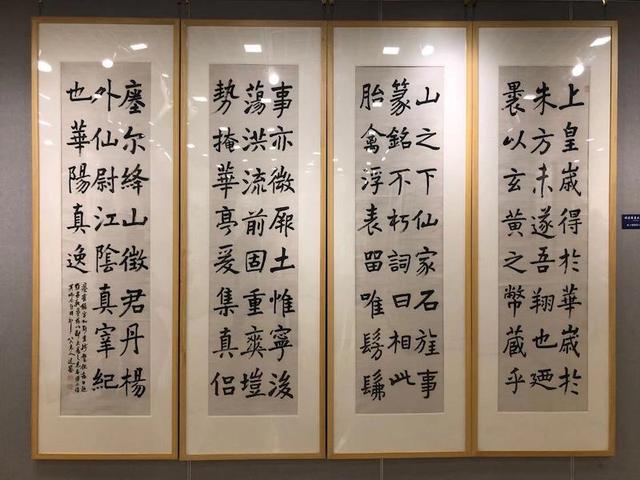 上皇歲得於華歲於
朱方未遂吾翔也迺
裹以玄黃之幣藏乎
山之下仙家石旌事
篆銘不朽詞曰相此
胎禽浮表留唯髣髴
事亦微厥土惟寧後
蕩洪流前固重爽塏
勢掩華亭爰集真侶
尔绛山徵君丹楊
外仙尉江陰真宰紀
也華陽真逸